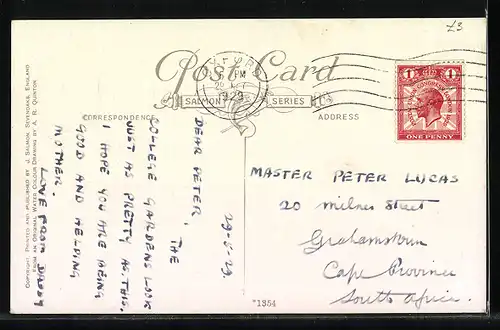 £3
Post Card
SALMON SERIES
CORRESPONDENCE
ADDRESS
OXFORD
PM
1929
1 1
POSTAL UNION CONGRESS LONDON
ONE PENNY
29-5-29.
DEAR PETER, THE
COLLEGE GARDENS LOOK
JUST AS PRETTY AS THIS.
I HOPE YOU ARE BEING
GOOD AND HELPING
MOTHER.
LOVE FROM DADDY
MASTER PETER LUCAS
20 Milnes Street
Grahamstown
Cape Province
South Africa.
COPYRIGHT. PRINTED AND PUBLISHED BY J. SALMON, SEVENOAKS, ENGLAND
FROM AN ORIGINAL WATER COLOUR DRAWING BY A. R. QUINTON
*1354